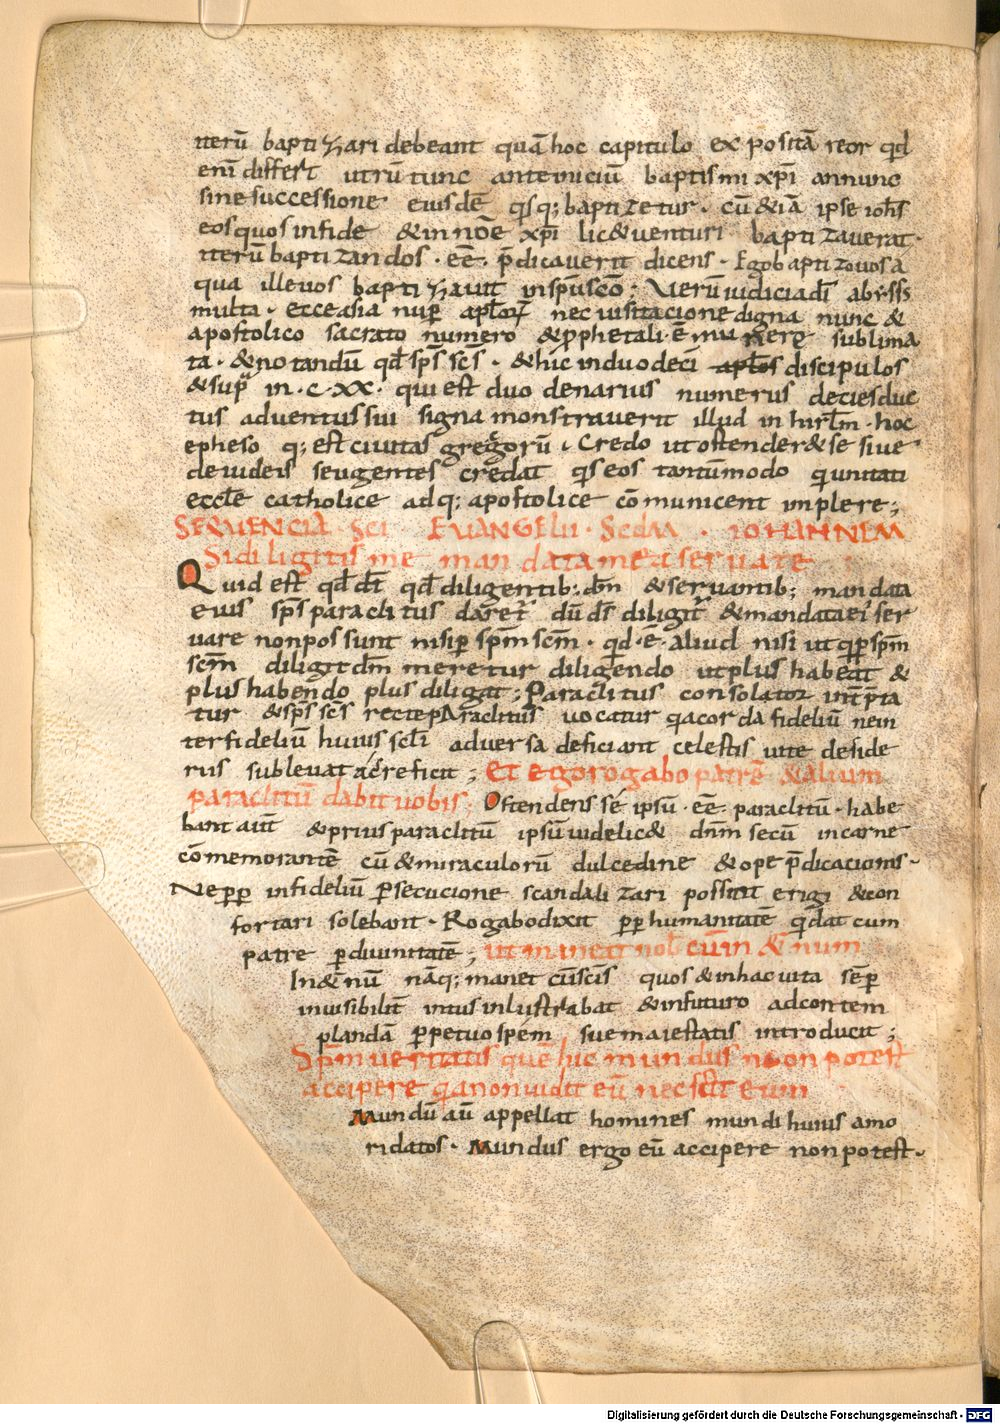 iterū baptizari debeant quā hoc capitulo expositā reor qd
enī differt utrū tunc ante iniciū baptismi xp̄i an nunc
sine successione eiusdē q̄sq; baptizetur · cū & iā ipse ioh̄s
eos quos in fide & in nōe xp̄i lic& uenturi baptizauerat ·
iterū baptizandos · eē · p̄dicauerit dicens · Ego baptizo uos a
qua ille uos baptizauit in sp̄u sc̄o; Uerū iudicia dī abyss
multa · eccęsia nup aptoꝝ nec uisitacione digna nunc &
apostolico sacrato numero & prophetali · ē munere sublima
ta · & notandū qd sp̄s sc̄s · & hic in duodeci aptos discipulos
& sup̄ in · c · xx · qui est duo denarius numerus decies duc
tus aduentus sui signa monstrauerit illud in hirl̄m · hoc
epheso q; est ciuitas gregorū · Credo ut ostender& se siue
de iudeis seu gentes credat q̄s eos tantūmodo q̄ unitati
eccl̄e catholice adq; apostolice cōmunicent implere;
SEQUENCIA · Sc̄i EUANGELII · Scd̄M · IOHANNEM
Si diligitis me mandata mea seruate
Quid est qd dt̄ qd diligentib; dn̄m & seruantib; mandata
eius sp̄s paraclitus daretr̄ dū ds̄ diligit̄ & mandata eī ser
uare non possunt nisi p̄ sp̄m sc̄m · qd · ē · aliud nisi ut q̄ p̄ sp̄m
sc̄m diligit dn̄m meretur diligendo ut plus habeat &
plus habendo plus diligat; Paraclitus consolator int̄p̄ta
tur & sp̄s sc̄s recte pAraclitus uocatur q̄a corda fideliū ne in
ter fideliū huius sc̄li aduersa deficiant celestis uite deside
rus subleuat ac reficit; Et ego rogabo patrē & alium
paraclitū dabit uobis; Ostendens se ipsū · eē · paraclitū · habe
bant aut̄ & prius paraclitū ipsū uidelic& dn̄m secū in carne
cōmemorantē cū & miraculorū dulcedine & ope p̄dicacionis ·
Ne p̄p̄ infideliū p̄secucione scandalizari possint erigi & con
fortari solebant · Rogabo dixit p̄p̄ humanitatē q̄ dat cum
patre p̄ diuinitatē; ut maneat uob̄ cum in &̄num
In &̄nū nāq; manet cū sc̄is quos & in hac uita sēp̄
inuisibilit̄ intus inlustrabat & in futuro ad contem
plandā p̄petuo spem sue maiestatis introducit;
Sp̄m ueritatis que hic mundus non potest
accipere q̄a non uidit eū nec scit eum
Mundū au̅ appellat homines mundi huius amo
ri datos · Mundus ergo eū accipere non potest ·
Digitalisierung gefördert durch die Deutsche Forschungsgemeinschaft - DFG